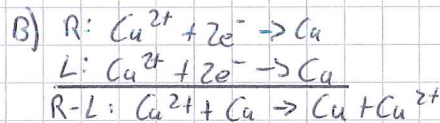 B) R: Cu²⁺ + 2e⁻ -> Cu
L: Cu²⁺ + 2e⁻ -> Cu
R-L: Cu²⁺ + Cu → Cu + Cu²⁺